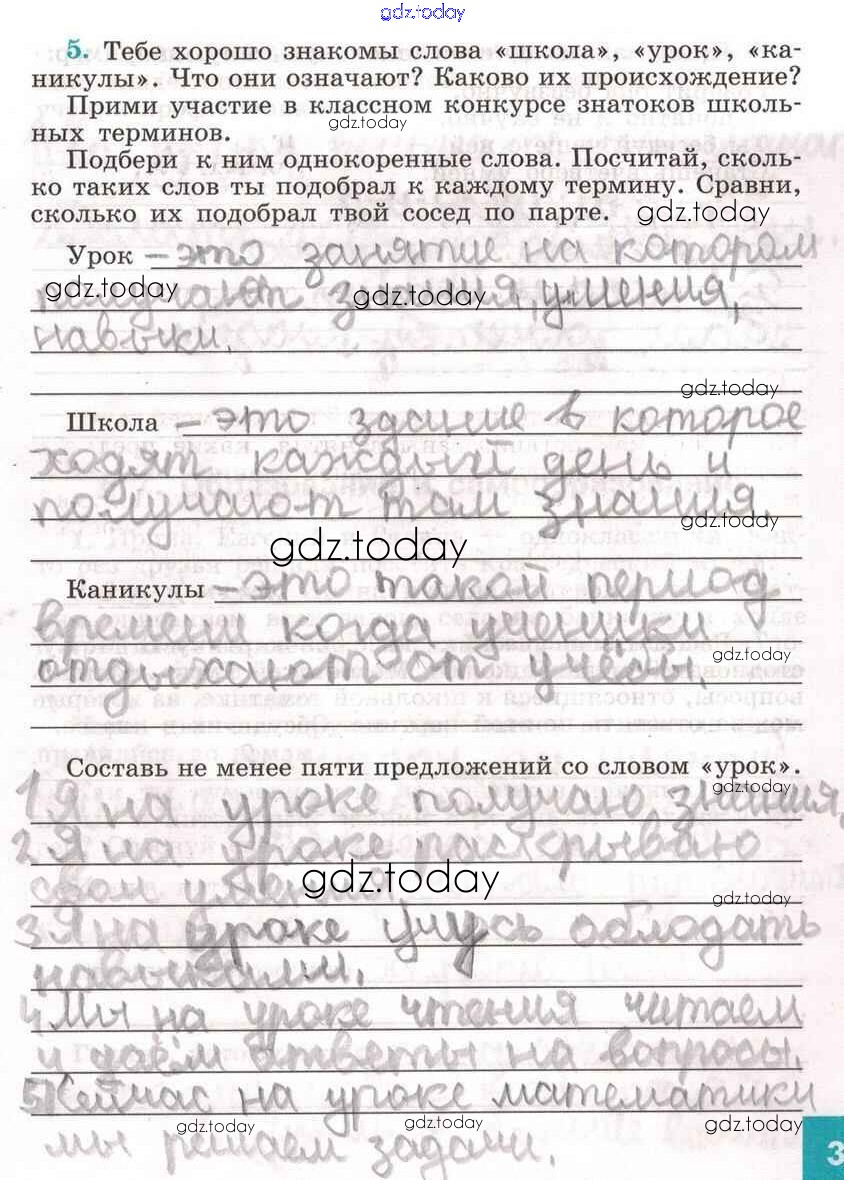 gdz.today
5. Тебе хорошо знакомы слова «школа», «урок», «ка-
никулы». Что они означают? Каково их происхождение?
Прими участие в классном конкурсе знатоков школь-
gdz.today
ных терминов.
Подбери к ним однокоренные слова. Посчитай, сколь-
ко таких слов ты подобрал к каждому термину. Сравни,
сколько их подобрал твой сосед по парте. gdz.today
Урок – это занятие на котором
получают знания, умения,
gdz.today gdz.today
навыки.
gdz.today
Школа – это здание в которое
ходят каждый день и
получают там знания.
gdz.today
gdz.today
Каникулы – это такой период
времени когда ученики
gdz.today
отдыхают от учёбы.
Составь не менее пяти предложений со словом «урок».
gdz.today
1. Я на уроке получаю знания.
2. Я на уроке раскрываю
gdz.today
свои умения.
gdz.today
3. Я на уроке учусь облодать
навыками.
4. Мы на уроке чтения читаем
и даём ответы на вопросы.
5. Сейчас на уроке математики
gdz.today gdz.today gdz.today
мы решаем задачи.
3